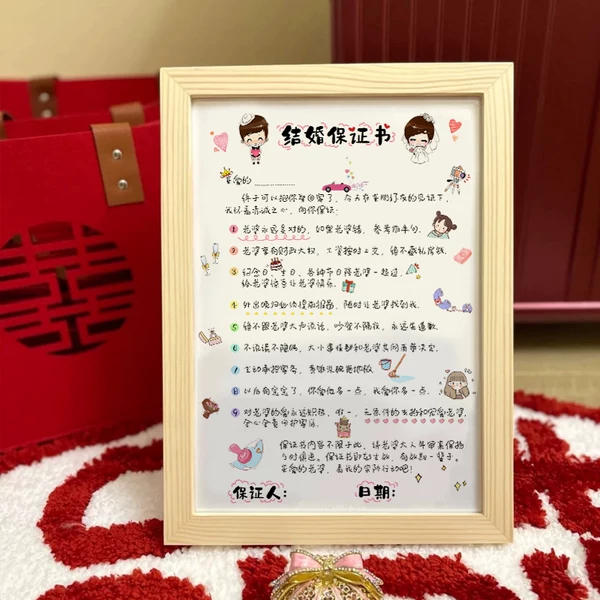 结婚保证书
亲爱的
终于可以把你娶回家了，今天在亲朋好友的见证下，
我怀着赤诚之心，向你保证：
1 老婆永远是对的，如果老婆错，参考前半句。
2 老婆享有财政大权，工资按时上交，绝不藏私房钱。
3 纪念日、生日、各种节日陪老婆一起过，
给老婆惊喜让老婆快乐。
4 外出晚归必须提前报备，随时让老婆找到我。
5 绝不跟老婆大声说话，吵架不隔夜，永远先道歉。
6 不说谎不隐瞒，大小事情都和老婆共同商量决定。
7 主动承担家务，
8 以后有宝宝了，你爱他多一点，我爱你多一点。
9 对老婆的爱永远炽热、唯一，无条件的支持和宠爱老婆，
全心全意守护家庭。
保证书内容不限于此，请老婆大人
保证书即刻生效，有效期一辈子。
亲爱的老婆，看我的实际行动吧！
保证人： 日期：
囍